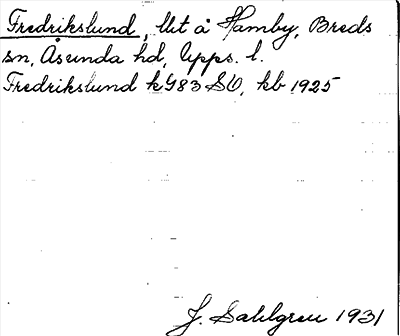 Fredrikslund, lht å Hamby, Breds
sn, Åsunda hd, Upps. l.
Fredrikslund kG83 SO, kb 1925
J. Sahlgren 1931